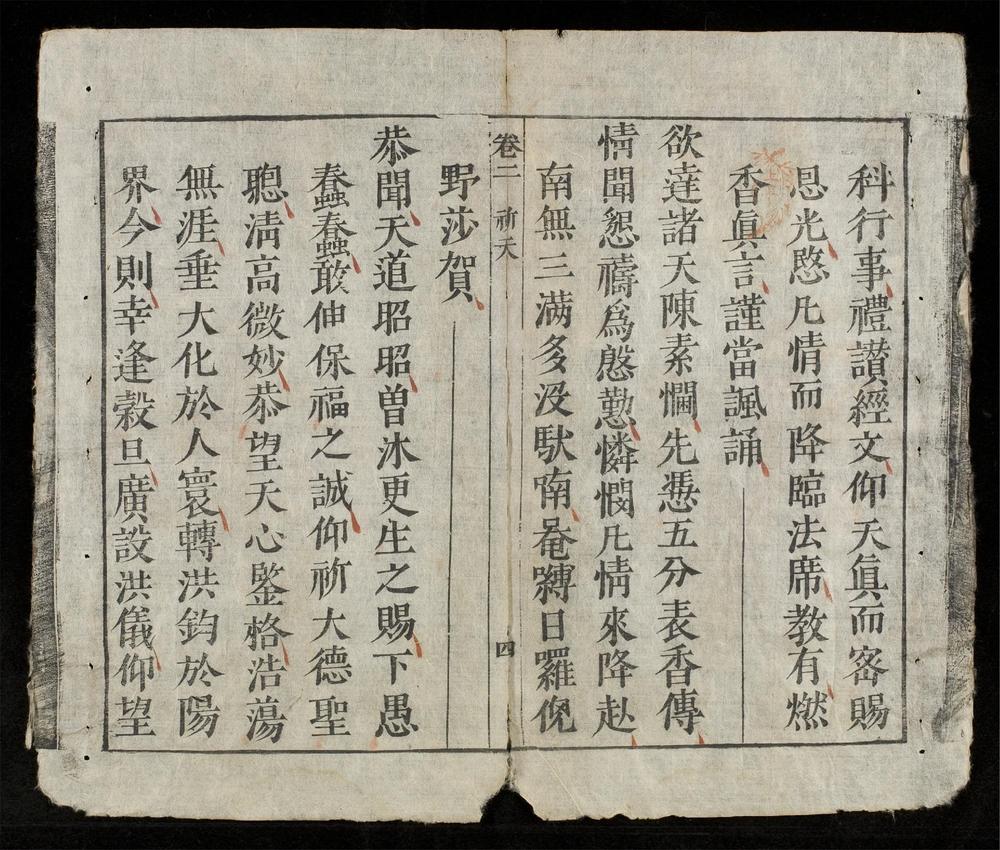 科行事禮讃經文仰天眞而密賜
恩光愍凢情而降臨法席教有燃
香眞言謹當諷誦
欲逹諸天陳素悃先憑五分表香傳
情聞懇禱爲慇懃憐憫凢情來降赴
南無三满多没馱喃唵嚩日囉倪
野莎賀
卷二 祈天 四
恭聞天道昭昭曽沐更生之賜下愚
蠢蠢敢伸保福之誠仰祈大德聖
聰清高微妙恭望天心鑒格浩蕩
無涯垂大化於人寰轉洪鈞於陽
界今則幸逢榖旦廣設洪儀仰望